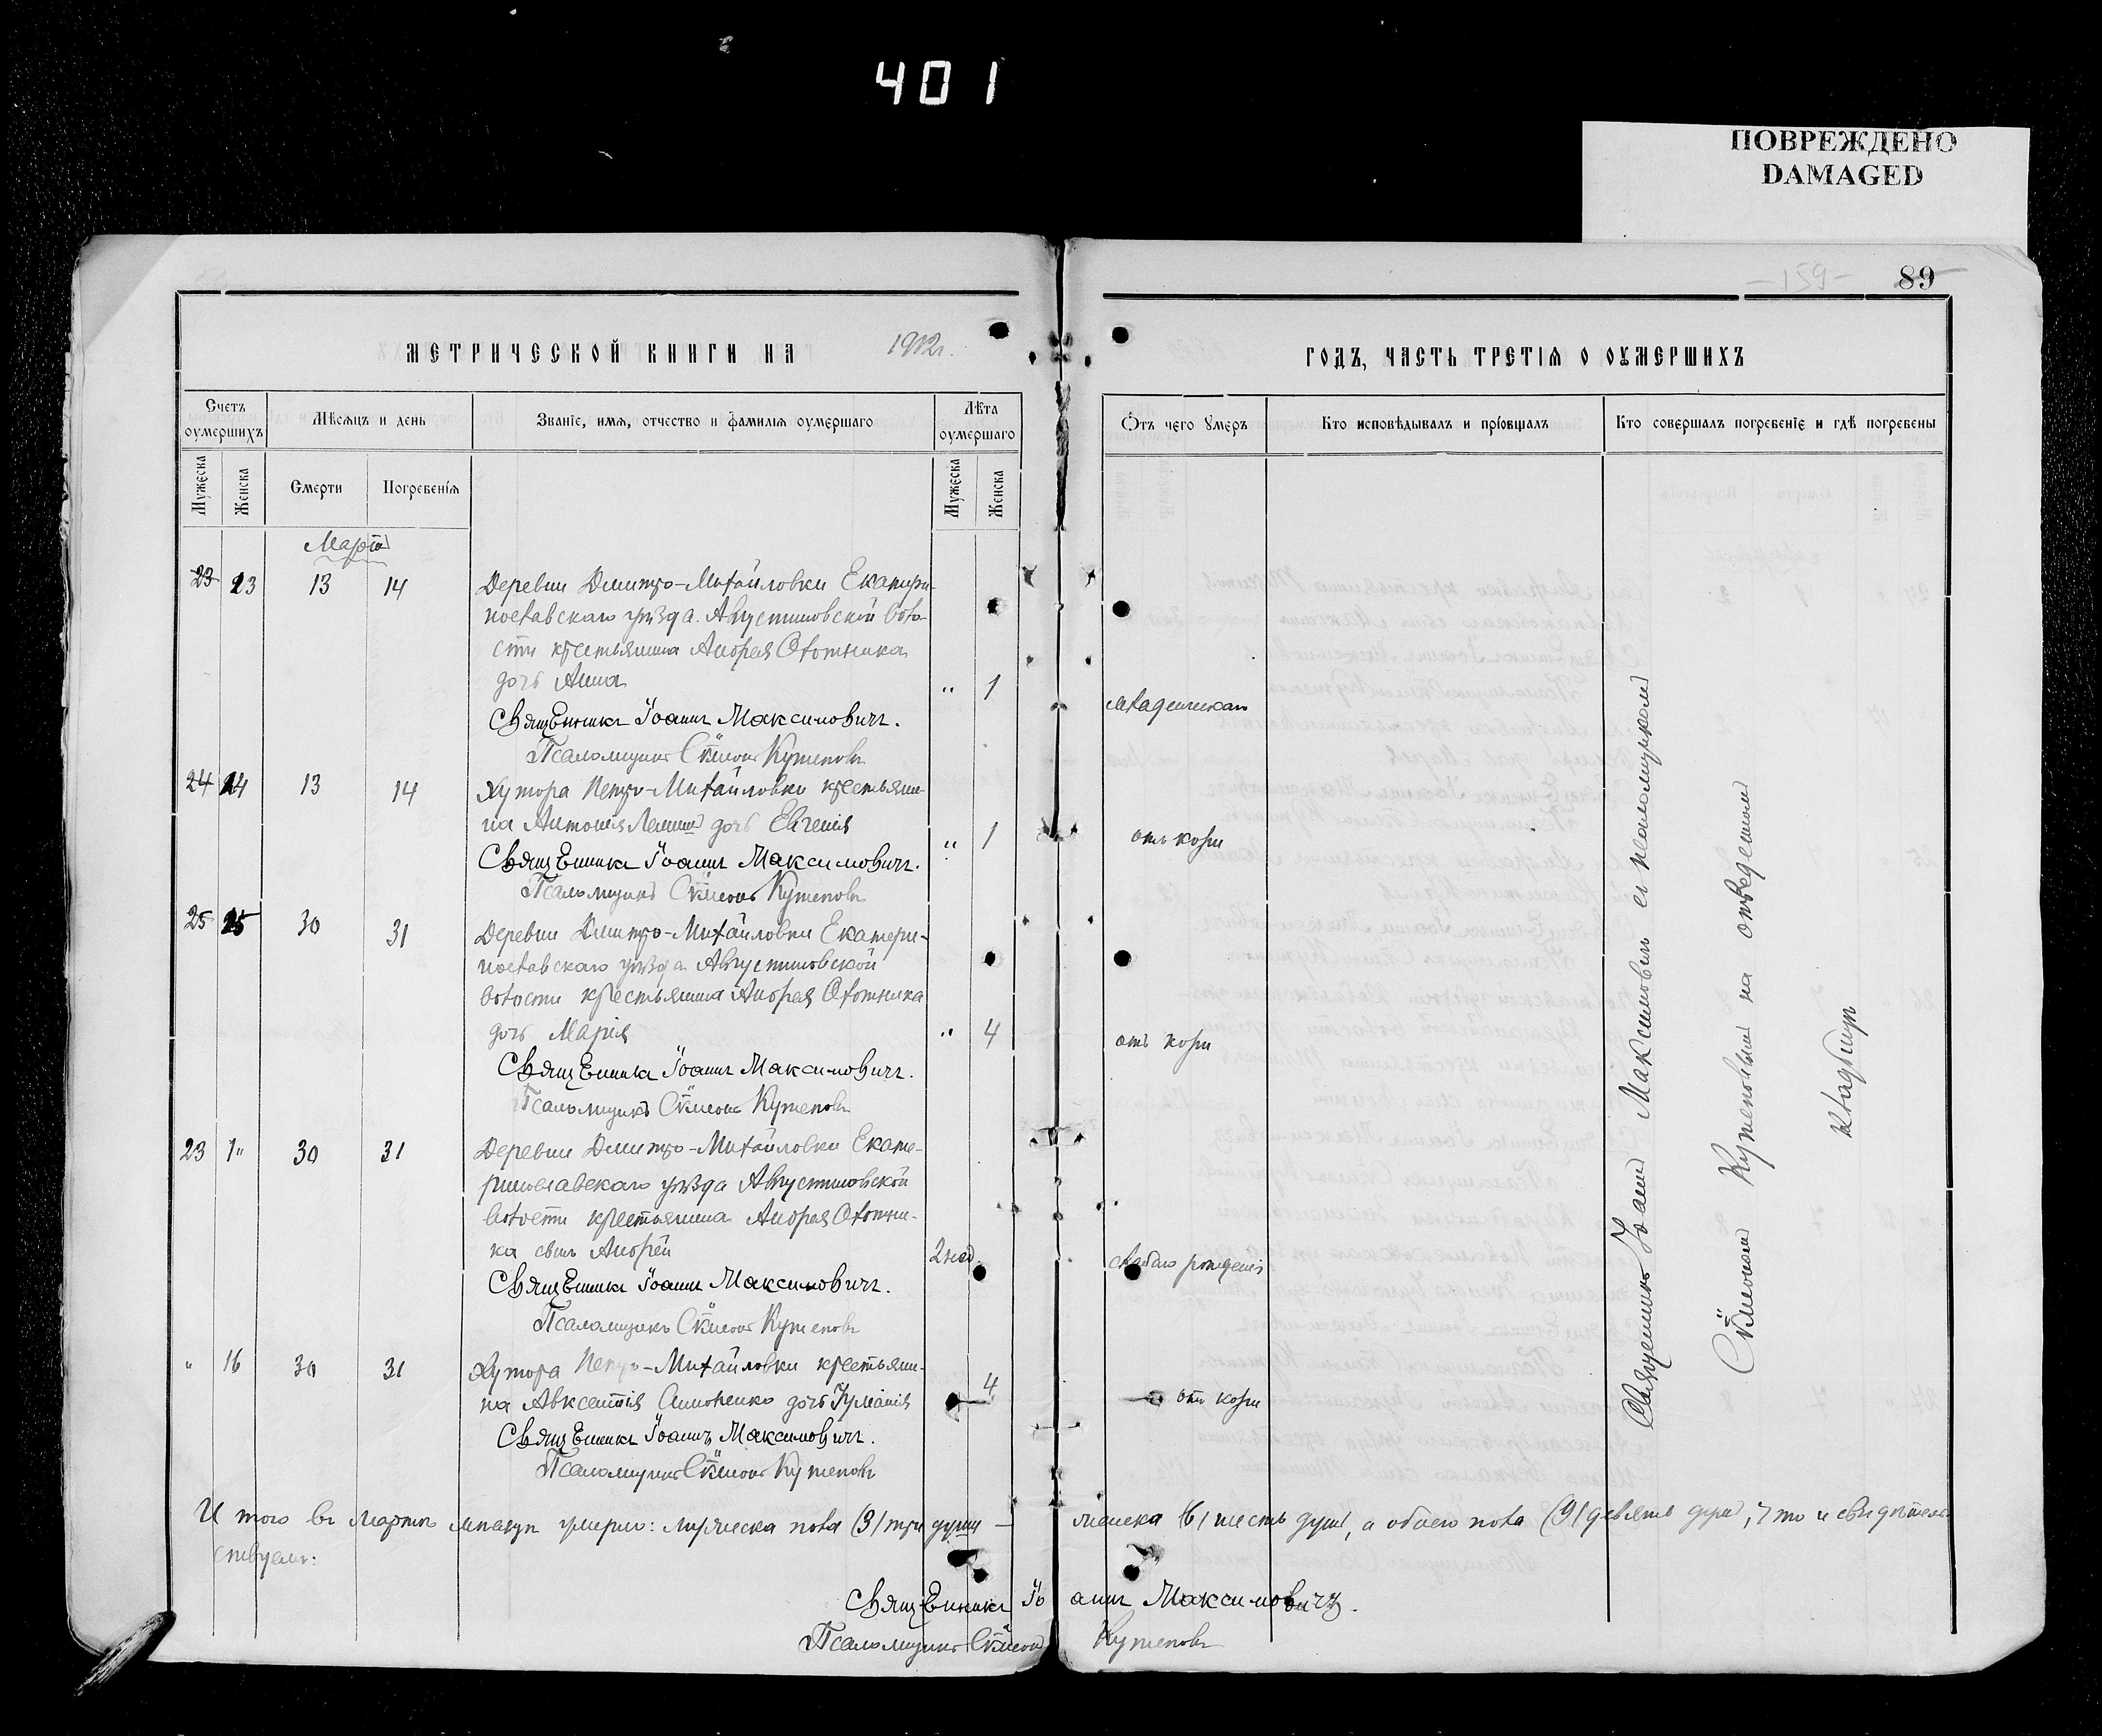 401
ПОВРЕЖДЕНО
DAMAGED
159
89
МЕТРИЧЕСКОЙ КНИГИ НА 1912г.
ГОДЪ, ЧАСТЬ ТРЕТІѦ О ОУМЕРШИХЪ
Счетъ оумершихъ
Мѣсяцъ и день
Званіе, имя, отчество и фамилія оумершаго
Лѣта оумершаго
Отъ чего умеръ
Кто исповѣдывалъ и пріобщалъ
Кто совершалъ погребеніе и гдѣ погребены
Мужеска
Женска
Смерти
Погребенія
Мужеска
Женска
Мартъ
23 23 13 14 Деревни Дмитро-Михайловки Екатери-
нославскаго уѣзда Августиновской воло-
сти крестьянина Андрея Охотника
дочь Анна " 1 младенческаго
Священникъ Іоаннъ Максимовичъ.
Псаломщикъ Сѵмеонъ Кутеповъ
24 14 13 14 Хутора Петро-Михайловки крестьяни-
на Антонія дочь Евгенія " 1 отъ кори
Священникъ Іоаннъ Максимовичъ.
Псаломщикъ Сѵмеонъ Кутеповъ
25 15 30 31 Деревни Дмитро-Михайловки Екатери-
нославскаго уѣзда Августиновской
волости крестьянина Андрея Охотника
дочь Марія " 4 отъ кори
Священникъ Іоаннъ Максимовичъ.
Псаломщикъ Сѵмеонъ Кутеповъ
23 " 30 31 Деревни Дмитро-Михайловки Екате-
ринославскаго уѣзда Августиновской
волости крестьянина Андрея Охотни-
ка сынъ Андрей 2 нед. слабаго рожденія
Священникъ Іоаннъ Максимовичъ.
Псаломщикъ Сѵмеонъ Кутеповъ
" 16 30 31 Хутора Петро-Михайловки крестьяни-
на Авксентія дочь Іуліанія 4 отъ кори
Священникъ Іоаннъ Максимовичъ.
Псаломщикъ Сѵмеонъ Кутеповъ
Священникъ Іоаннъ Максимовичъ съ псаломщикомъ
Сѵмеономъ Кутеповымъ на отведенномъ
кладбищѣ
И того въ Мартѣ мѣсяцѣ умерло: мужеска пола (3) три души — женска (6) шесть душъ, а обоего пола (9) девять душъ, что и свидѣтель-
ствуемъ:
Священникъ Іоаннъ Максимовичъ.
Псаломщикъ Сѵмеонъ Кутеповъ